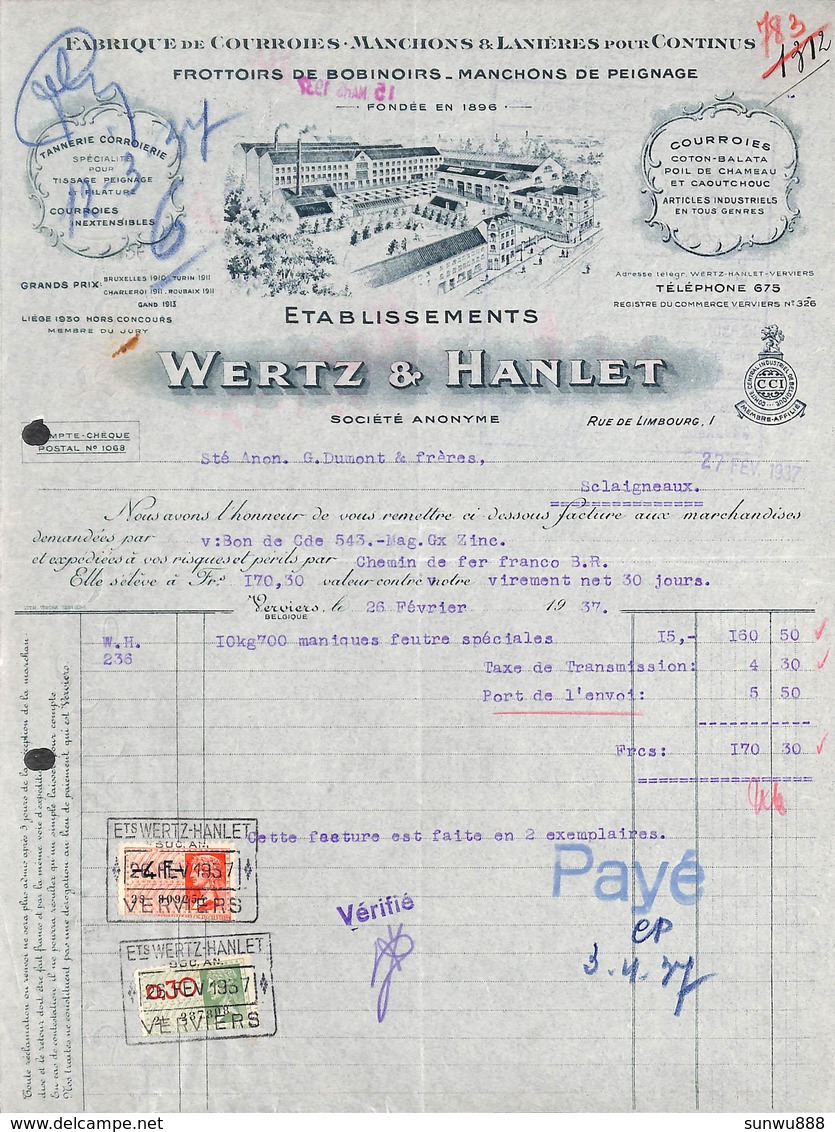 FABRIQUE DE COURROIES · MANCHONS & LANIÈRES POUR CONTINUS
783
1312
FROTTOIRS DE BOBINOIRS _ MANCHONS DE PEIGNAGE
FONDÉE EN 1896
TANNERIE CORROIERIE
SPÉCIALITÉ
POUR
TISSAGE PEIGNAGE
FILATURE
COURROIES
INEXTENSIBLES
COURROIES
COTON-BALATA
POIL DE CHAMEAU
ET CAOUTCHOUC
ARTICLES INDUSTRIELS
EN TOUS GENRES
GRANDS PRIX: BRUXELLES 1910 TURIN 1911
CHARLEROI 1911 - ROUBAIX 1911
GAND 1913
LIÈGE 1930 HORS CONCOURS
MEMBRE DU JURY
Adresse télégr. WERTZ-HANLET-VERVIERS
TÉLÉPHONE 675
REGISTRE DU COMMERCE VERVIERS Nº 326
ETABLISSEMENTS
WERTZ & HANLET
COMITÉ CENTRAL INDUSTRIEL DE BELGIQUE
CCI
MEMBRE-AFFILIÉ
SOCIÉTÉ ANONYME
RUE DE LIMBOURG, 1
POSTAL Nº 1068
Sté Anon. G.Dumont & frères,
27 FEV. 1937
Sclaigneaux.
Nous avons l'honneur de vous remettre ci dessous facture aux marchandises
demandées par v:Bon de Cde 543.-Mag.Gx Zinc.
et expédiées à vos risques et périls par Chemin de fer franco B.R.
Elle s'élève à Frs 170,30 valeur contre votre virement net 30 jours.
Verviers, le 26 Février 1937.
BELGIQUE
W.H. 10kg700 maniques feutre spéciales 15,- 160 50
236
Taxe de Transmission: 4 30
Port de l'envoi: 5 50
Frcs: 170 30
Cette facture est faite en 2 exemplaires.
ETS WERTZ-HANLET
SOC. AN.
VERVIERS
Payé
Vérifié
CP
3.4.37
ETS WERTZ-HANLET
SOC. AN.
0.30
26 FEV 1937
VERVIERS
Toute réclamation ou renvoi ne sera plus admis après 3 jours de la réception de la marchan